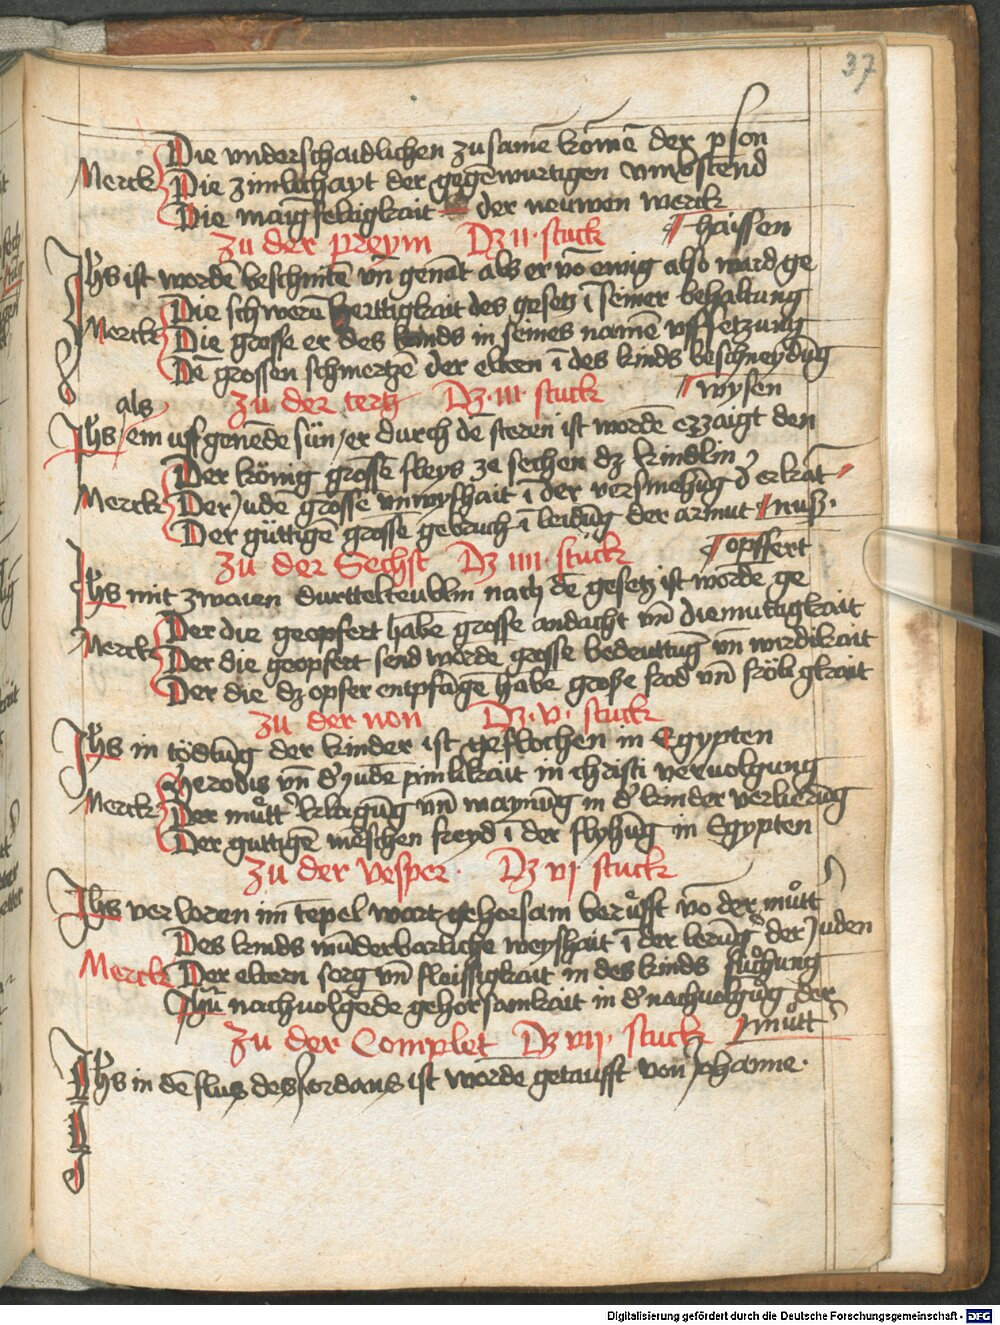 37
Die vnderschaidlichen zu samē komē der pson
Merck Die zimlichayt der gegēwurtigen vmbstend
Die manigfeltigkait der neuwen werck
Zu der preym Dz ii stuck haissen
Jhs ist wordē beschnitē vn̄ genāt als er vō ewig also ward ge
Die schwerē herttigkait des gesetz ī seiner behaltung
Merck Die grosse er des kinds in seines namē vffsetzung
Dē grossen schmertzē der eltern ī des kinds beschneydūg
Zu der tertz Dz iii stuck wysen
als
Jhs em uffgenēde sün er durch dē steren ist wordē erzaigt den
Der könig grosse fleys ze sechen dz kindlin
Merck Der Juden grosse vnwyshait ī der versmehūg d' erkāt
Der güttigē grosse gebruch ī leidūg der armut nuß
Zu der Sechst Dz iiii stuck opffert
Jhs mit zwaien durttelteublin nach dē gesetz ist wordē ge
Der die geopfert habē grosse andacht vn̄ diemuttigkait
Merck Der die geopfert send wordē grosse bedeuttūg vn̄ wirdikait
Der die dz opfer entpfāgē habē grosse frod vn̄ fröligkait
Zu der non Dz v stuck
Jhs in tödtūg der kinder ist geflochen in Egypten
Herodis vn̄ d' judē pinlikait in christi vervolgung
Merck Der mütt' klagūg vn̄ waynūg in d' kinder verlierūg
Der guttigē mēschen freyd ī der flyhūg in Egypten
Zu der vesper Dz vi stuck
Jhs verloren im tēpel wart gehorsam berüfft vō der mütt
Des kinds wūderbarliche weyshait ī der lerūg der Juden
Merck Der eltern sorg vn̄ fleissigkait in des kinds suchung
Jhū nachvolgēde gehorsamkait in d' nachvolgūg der
Zu der Complet Dz vii stuck mütt
Jhs in dē flus des Jordans ist wordē getaufft von Johanne
Digitalisierung gefördert durch die Deutsche Forschungsgemeinschaft - DFG